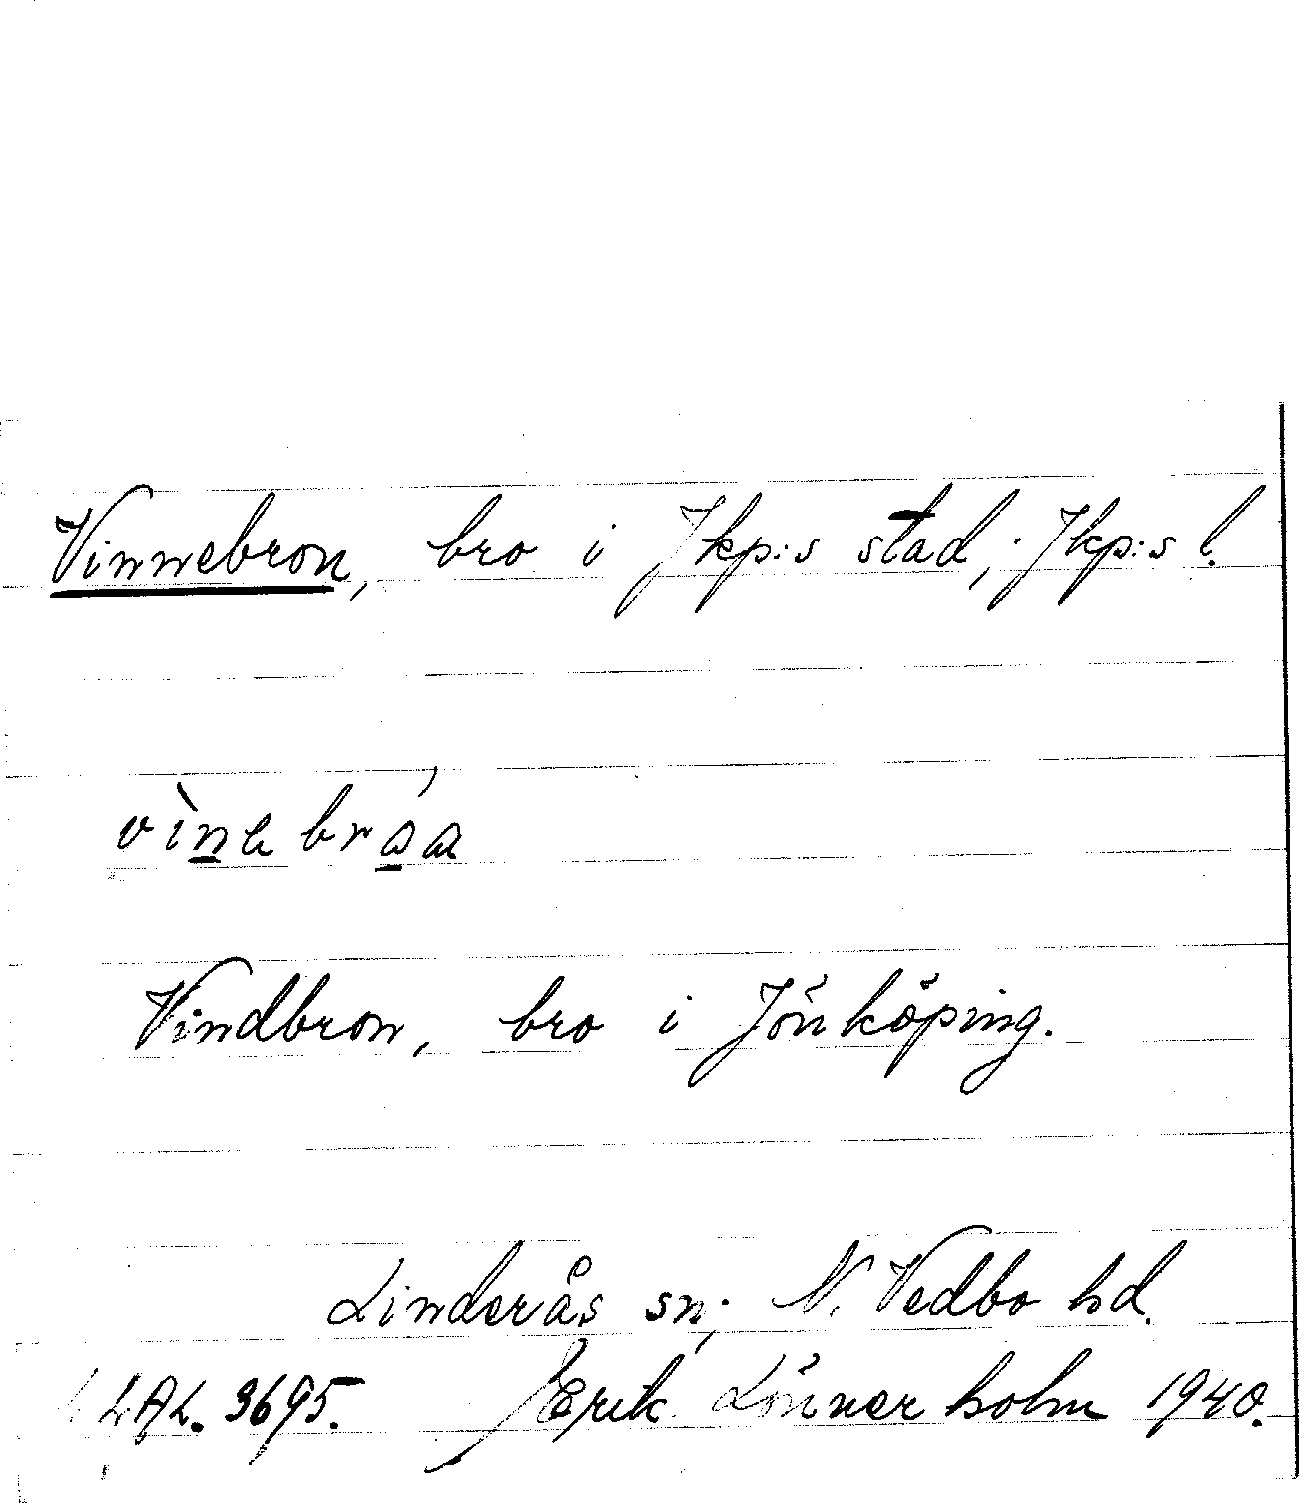 Vinnebron, bro i Jkp:s stad; Jkp:s l.
vìnebróa
Vindbron, bro i Jönköping.
Linderås sn; N. Vedbo hd.
LAL. 3695. Erik Lönnerholm 1940.